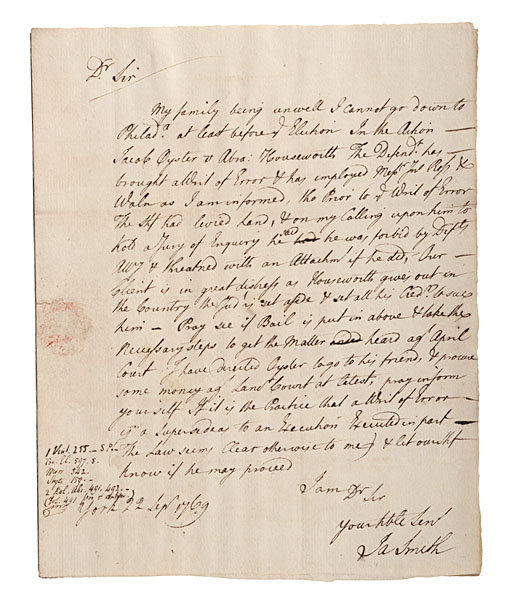 Dr Sir
My family being unwell I cannot go down to
Philada. at least before ye Election In the Action
Jacob Oyster v Abra: Houseworth The Defendt has
brought a Writ of Error & has employed Messrs Jno Ross &
Waln as I am informed, tho Prior to ye Writ of Error
The Shf had levied hand, & on my Calling upon him to
hold a Jury of Enquiry he said had he was forbid by Defts
Atty & threatned with an Attachmt if he did, Our
Client is in great distress as Houseworth gives out in
the Country the Jud is set aside & set all his Credrs to sue
him – Pray see if Bail is put in above & take the
necessary steps to get the Matter heard agt April
Court I have directed Oyster to go to his friend, & procure
some money agt Lanr Court at latest, pray inform
yourself If it is the Practice that a Writ of Error
is a Supersedeas to an Execution Executed in part
(The Law seems Clear otherwise to me) & let our Shf
know if he may proceed
I am Dr Sir
Your Hble Servt
Ja Smith
1 Vent. 255 – S.P.
Cro. El. 597. 8.
342.
159. –
2 Rol. Abr. 491, 492 –
491
York 22 Sepr 1769